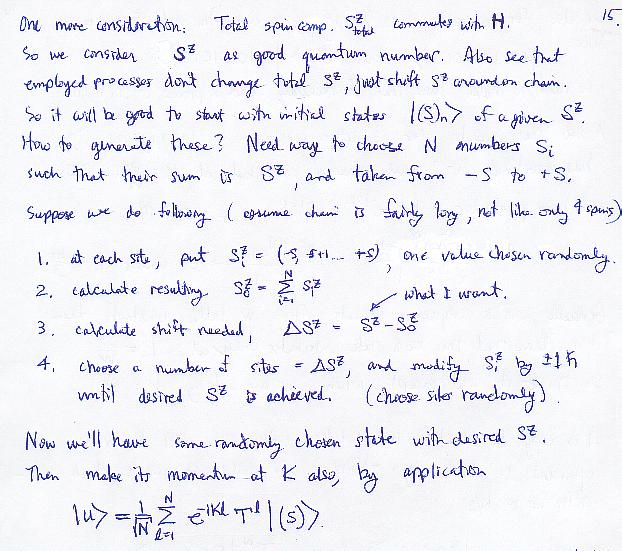 15.
One more consideration: Total spin comp. S^z_total commutes with H.
So we consider S^z as good quantum number. Also see that
employed processes don't change total S^z, just shift S^z around on chain.
So it will be good to start with initial states |(S)_n> of a given S^z.
How to generate these? Need way to choose N numbers S_i
such that their sum is S^z, and taken from -S to +S.
Suppose we do following (assume chain is fairly long, not like only 4 spins)
1. at each site, put S_i^z = (-S, S+1... +S), one value chosen randomly.
2. calculate resulting S_0^z = Σ_{i=1}^N S_i^z
what I want.
3. calculate shift needed, ΔS^z = S^z - S_0^z
4. choose a number of sites = ΔS^z, and modify S_i^z by ±1ħ
until desired S^z is achieved. (choose sites randomly)
Now we'll have some randomly chosen state with desired S^z.
Then make its momentum at K also, by application
|u> = 1/√N Σ_{l=1}^N e^{-iKl} T^l |(S)>.